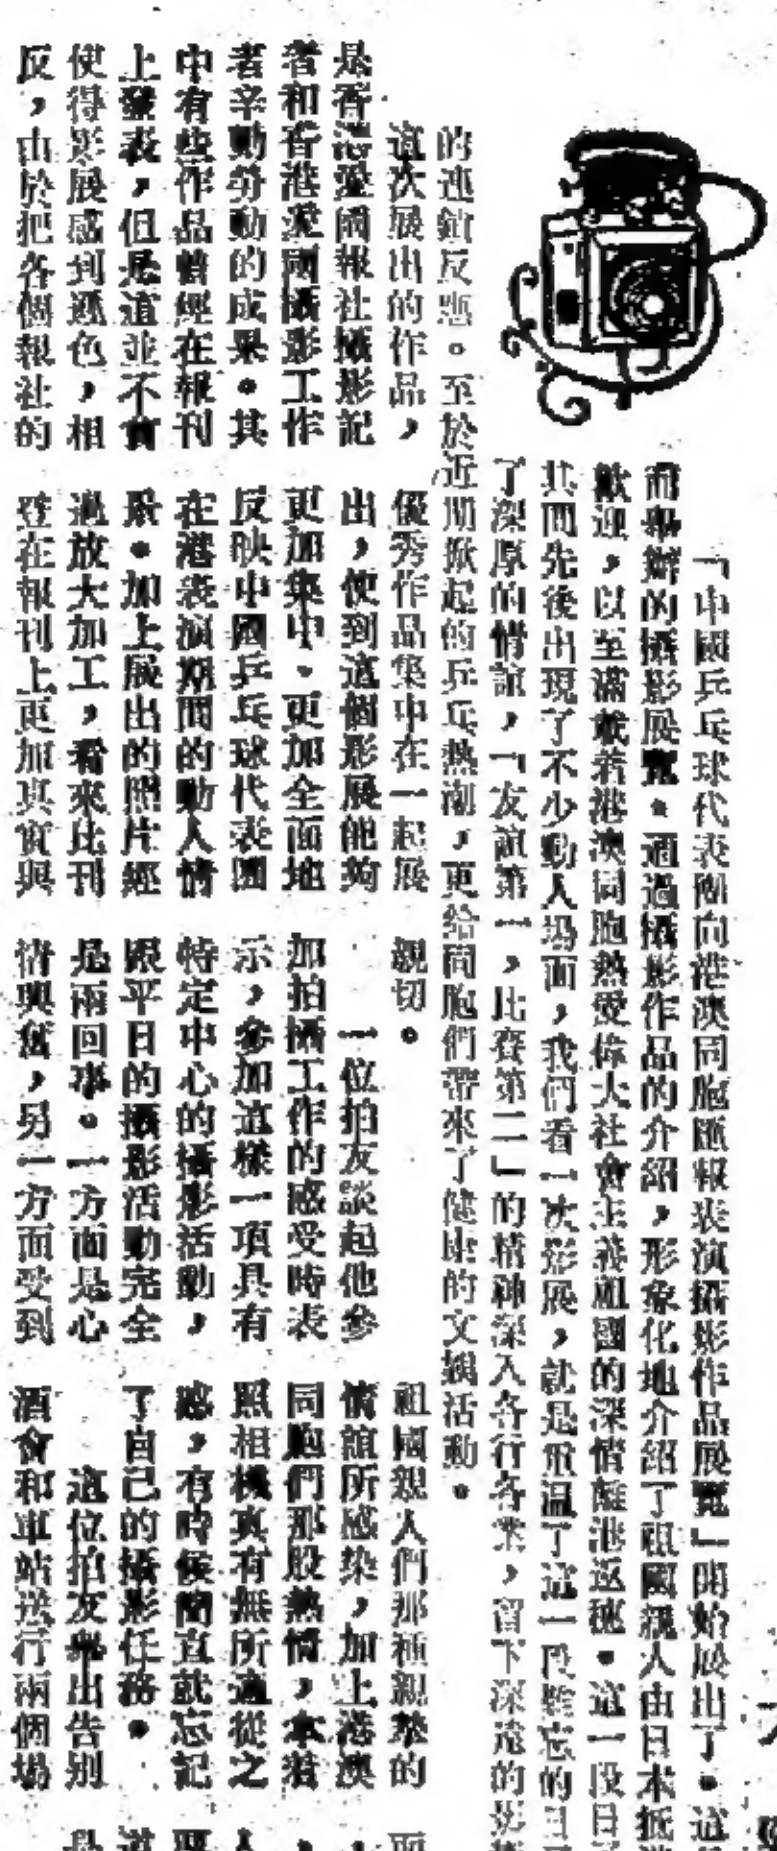 「中國乒乓球代表團向港澳同胞匯報表演攝影作品展覽」開始展出了。這
而舉辦的攝影展覽。通過攝影作品的介紹，形象化地介紹了祖國親人由日本抵
歡迎，以至滿載着港澳同胞熱愛偉大社會主義祖國的深情離港返穗。這一段日
其間先後出現了不少動人場面，我們看一次影展，就是重溫了這一段難忘的日
了深厚的情誼，「友誼第一，比賽第二」的精神深入各行各業，留下深遠的影
的連鎖反應。至於近期掀起的乒乓熱潮，更給同胞們帶來了健康的文娛活動。
這次展出的作品，
是香港愛國報社攝影記
者和香港愛國攝影工作
者辛勤勞動的成果。其
中有些作品曾經在報刊
上發表，但是這並不會
使得影展感到遜色，相
反，由於把各個報社的
優秀作品集中在一起展
出，使到這個影展能夠
更加集中、更加全面地
反映中國乒乓球代表團
在港表演期間的動人情
景。加上展出的照片經
過放大加工，看來比刊
登在報刊上更加真實與
親切。
一位拍友談起他參
加拍攝工作的感受時表
示，參加這樣一項具有
特定中心的攝影活動，
跟平日的攝影活動完全
是兩回事。一方面是心
情興奮，另一方面受到
祖國親人們那種親摯的
情誼所感染，加上港澳
同胞們那股熱情，拿着
照相機真有無所適從之
感，有時候簡直就忘記
了自己的攝影任務。
這位拍友舉出告別
酒會和車站送行兩個場